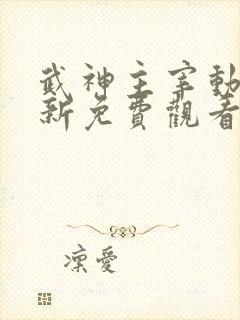 武神主宰動
新免費觀看
凜愛